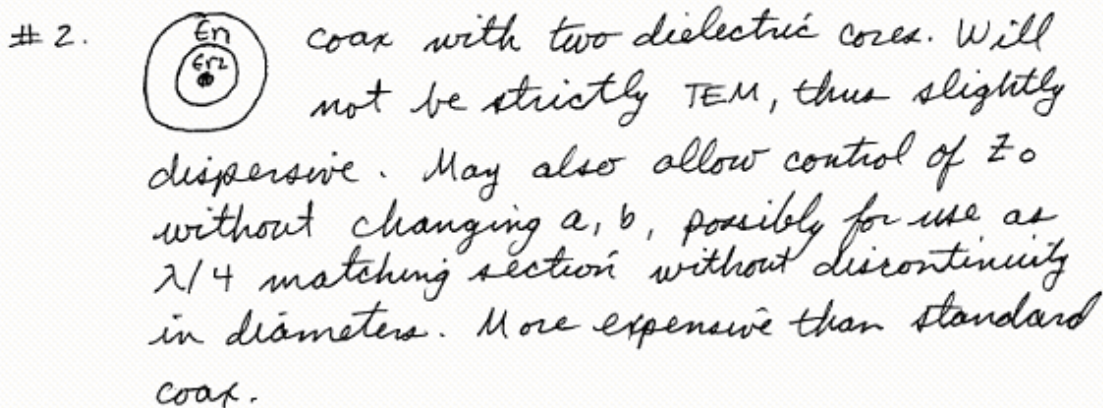 # 2.
Er1
Er2
coax with two dielectric cores. Will
not be strictly TEM, thus slightly
dispersive. May also allow control of Z0
without changing a, b, possibly for use as
λ/4 matching section without discontinuity
in diameters. More expensive than standard
coax.